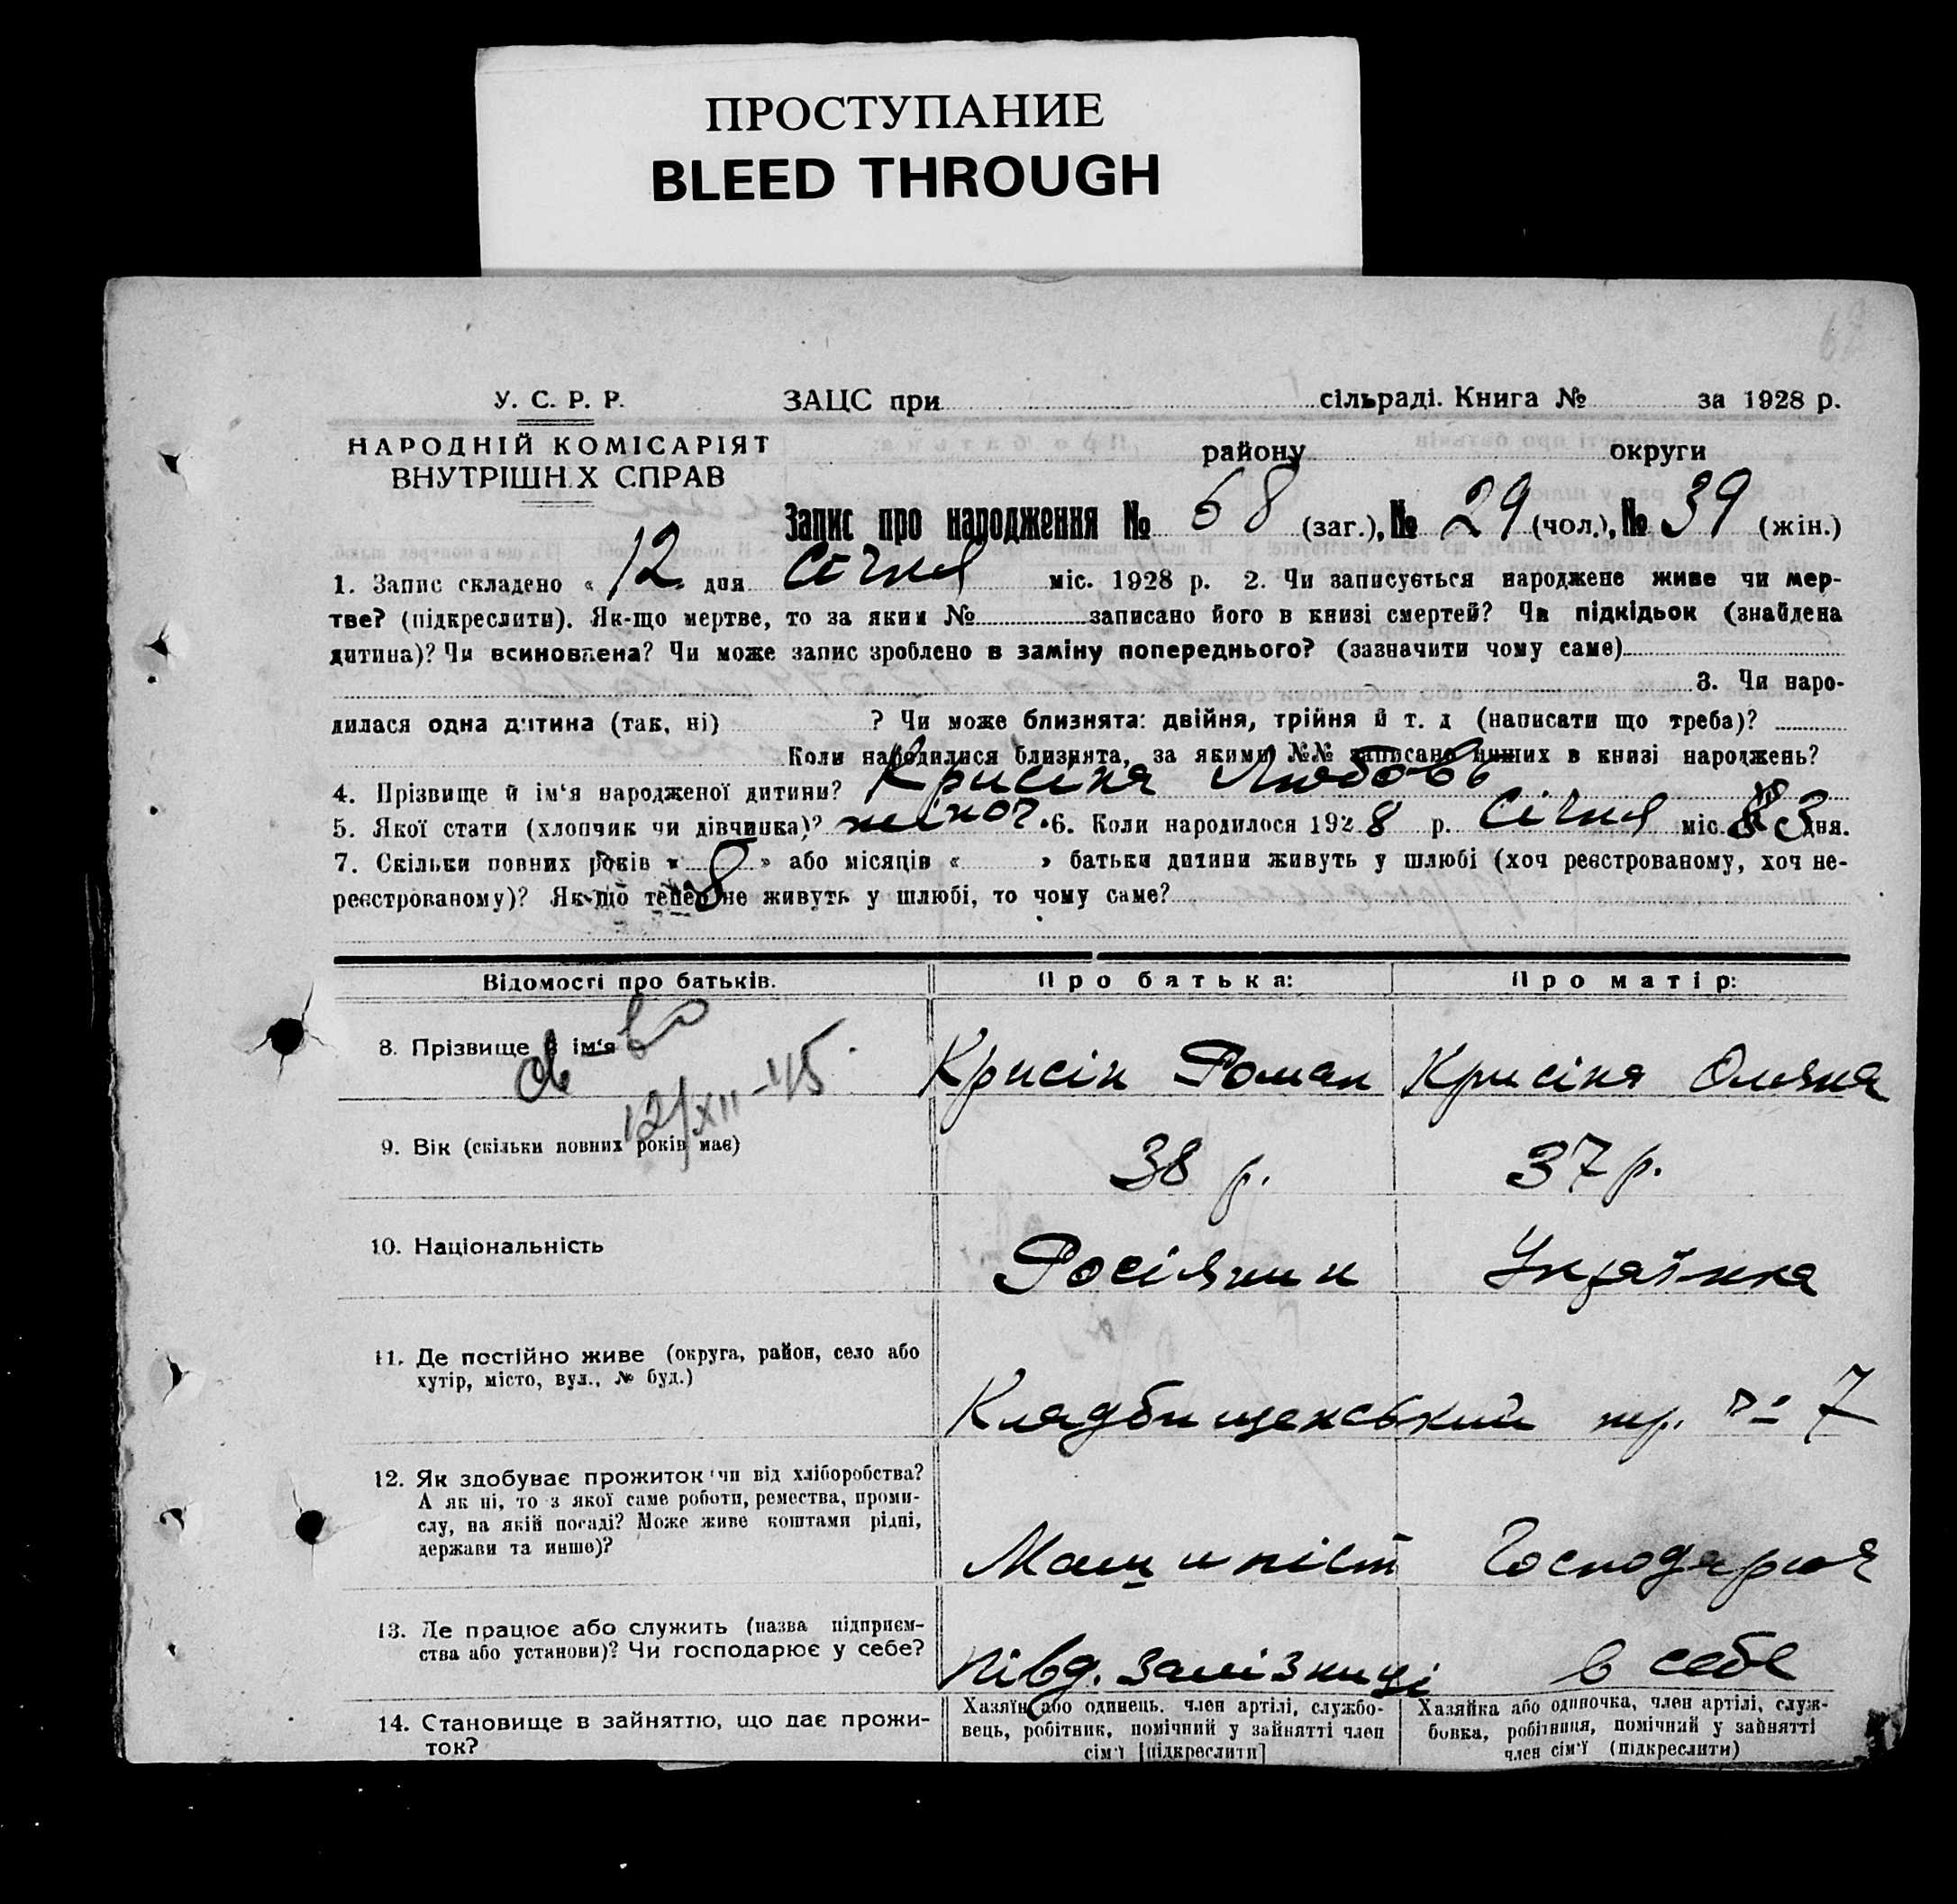 ПРОСТУПАНИЕ
BLEED THROUGH
У. С. Р. Р. ЗАЦС при сільраді. Книга № за 1928 р.
НАРОДНІЙ КОМІСАРІЯТ району округи
ВНУТРІШН.Х СПРАВ
Запис про народження № 68 (заг.), № 29 (чол.), № 39 (жін.)
1. Запис складено « 12 дня Січня міс. 1928 р. 2. Чи записується народжене живе чи мер-
тве? (підкреслити). Як-що мертве, то за яким № записано його в книзі смертей? Чи підкідьок (знайдена
дитина)? Чи всиновлена? Чи може запис зроблено в заміну попереднього? (зазначити чому саме)
3. Чи наро-
дилася одна дитина (так, ні) ? Чи може близнята: двійня, трійня й т. д (написати що треба)?
Коли народилися близнята, за якими №№ записано инших в книзі народжень?
4. Прізвище й ім'я народженої дитини? Крисіня Любовь
5. Якої стати (хлопчик чи дівчинка)? жіноч. 6. Коли народилося 1928 р. Січня міс. 3 дня.
7. Скільки повних років « 8 » або місяців « » батьки дитини живуть у шлюбі (хоч реєстрованому, хоч не-
реєстрованому)? Як-що тепер не живуть у шлюбі, то чому саме?
Відомості про батьків. Про батька: Про матір:
8. Прізвище й ім'я Крисін Роман Крисіня Олена
12/XII-45
9. Вік (скільки повних років має) 38 р. 37 р.
10. Національність Росіянин Українка
11. Де постійно живе (округа, район, село або
хутір, місто, вул., № буд.) Кладбищенський пр. № 7
12. Як здобуває прожиток чи від хліборобства?
А як ні, то з якої саме роботи, ремества, проми-
слу, на якій посаді? Може живе коштами рідні,
держави та инше)? Машиніст Господарює
13. Де працює або служить (назва підприєм-
ства або установи)? Чи господарює у себе? Півд. Залізниці в себе
14. Становище в зайняттю, що дає прожи-
ток?
Хазяїн або одинець, член артілі, службо-
вець, робітник, помічний у зайнятті член
сім'ї [підкреслити]
Хазяйка або одиночка, член артілі, служ-
бовка, робітниця, помічний у зайнятті
член сім'ї (підкреслити)